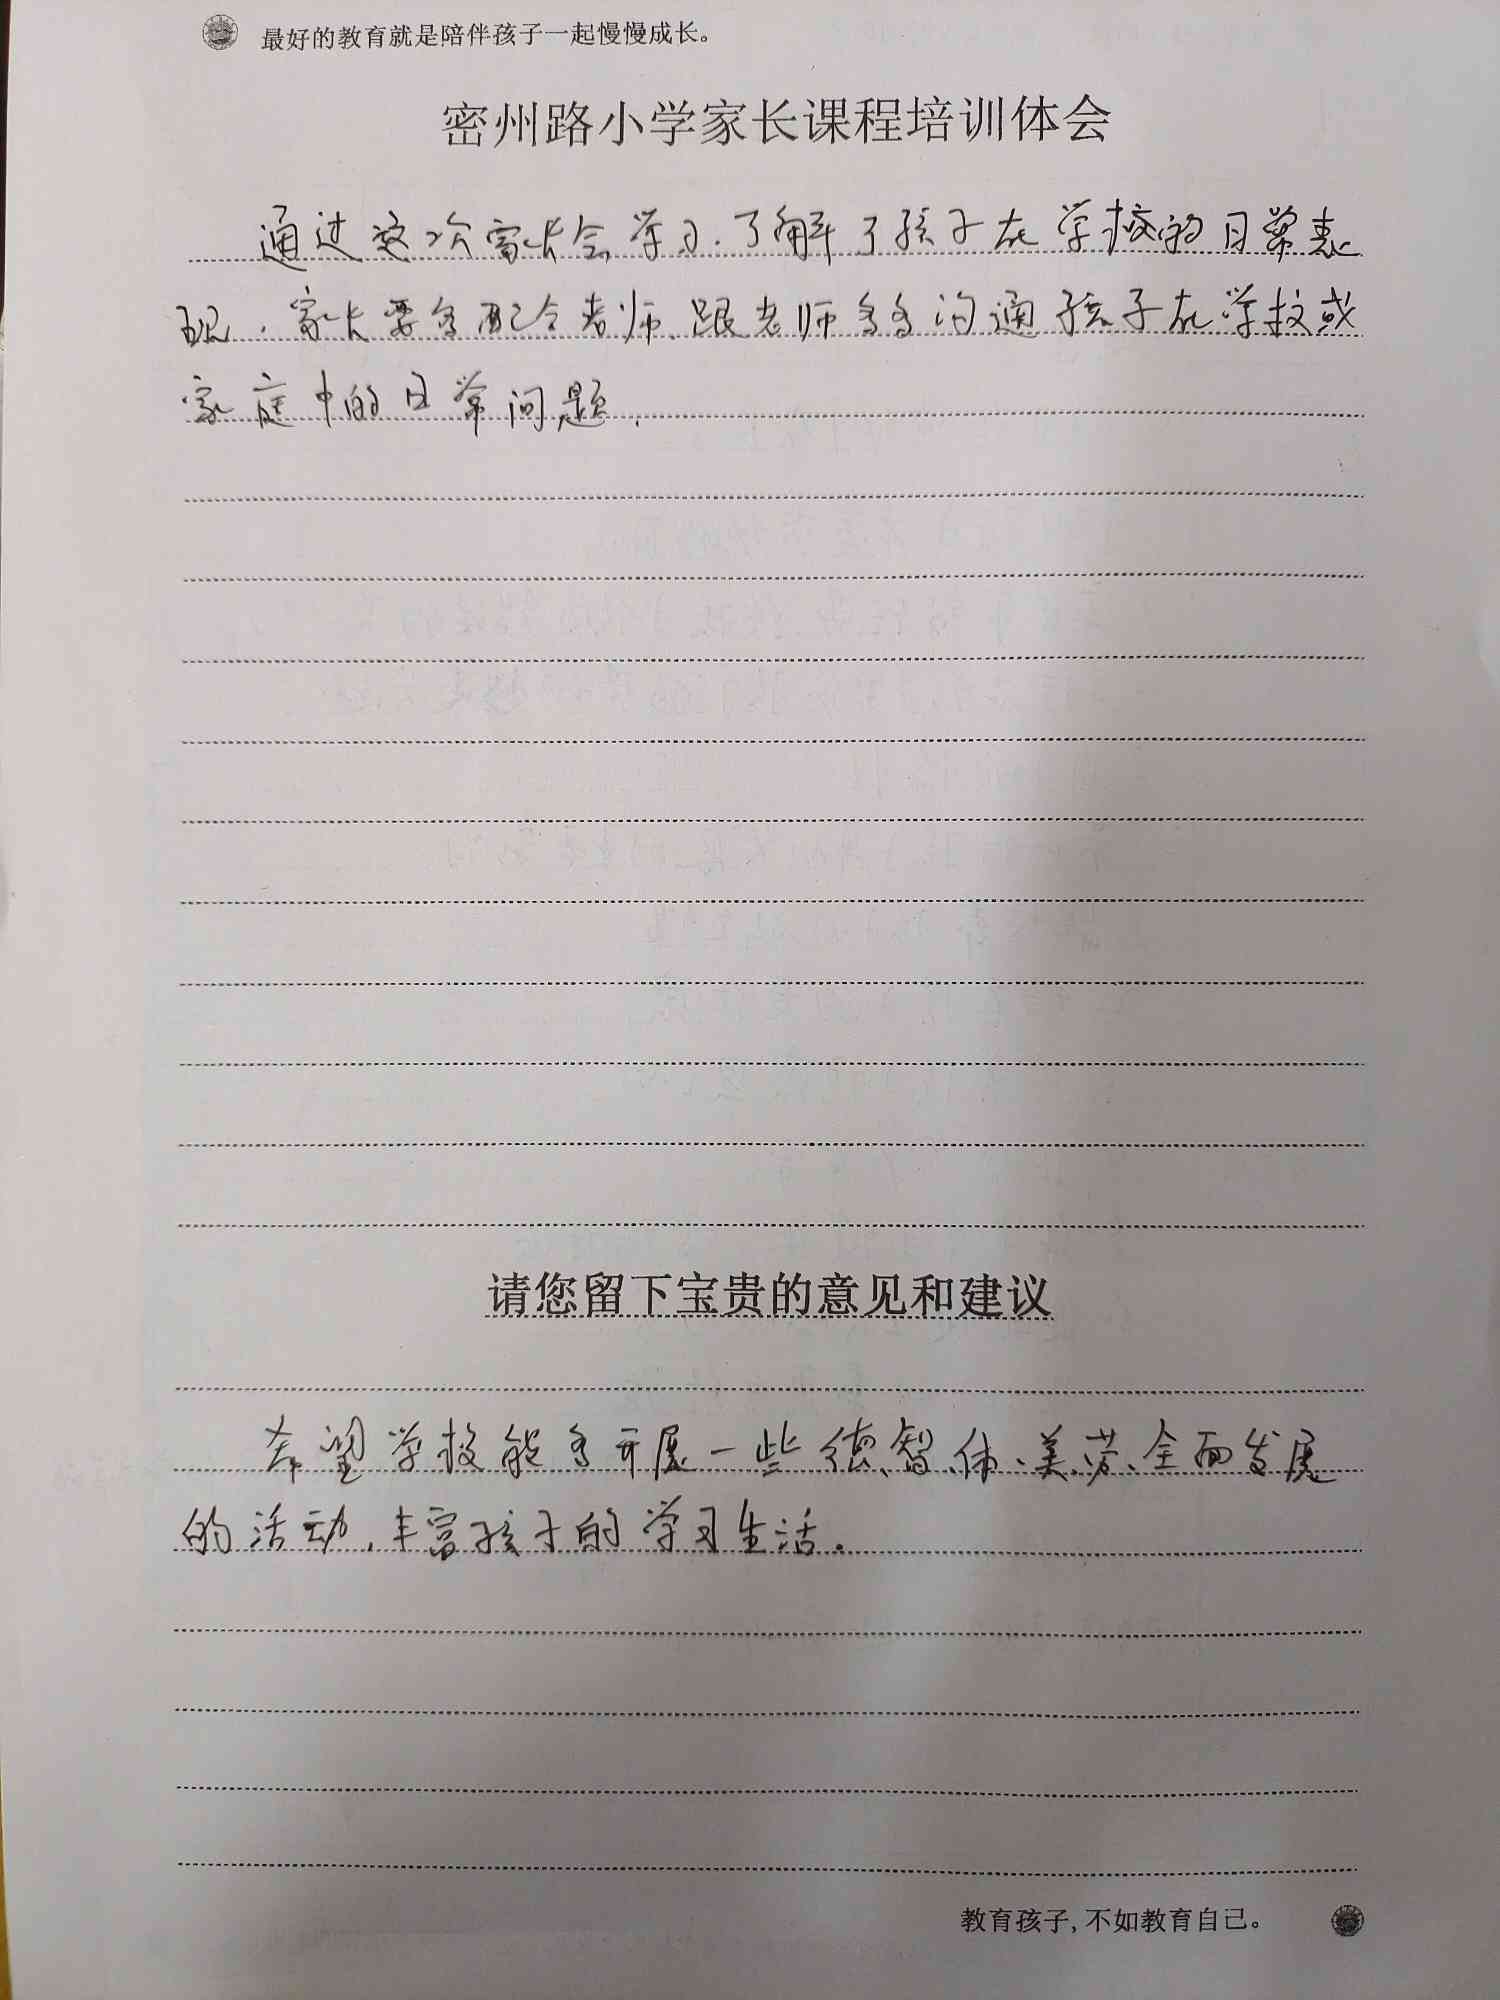 最好的教育就是陪伴孩子一起慢慢成长。
密州路小学家长课程培训体会
通过这次家长会学习.了解了孩子在学校的日常表
现.家长要多配合老师.跟老师多多沟通孩子在学校或
家庭中的日常问题.
请您留下宝贵的意见和建议
希望学校能多开展一些德、智、体、美、劳、全面发展
的活动,丰富孩子的学习生活。
教育孩子,不如教育自己。